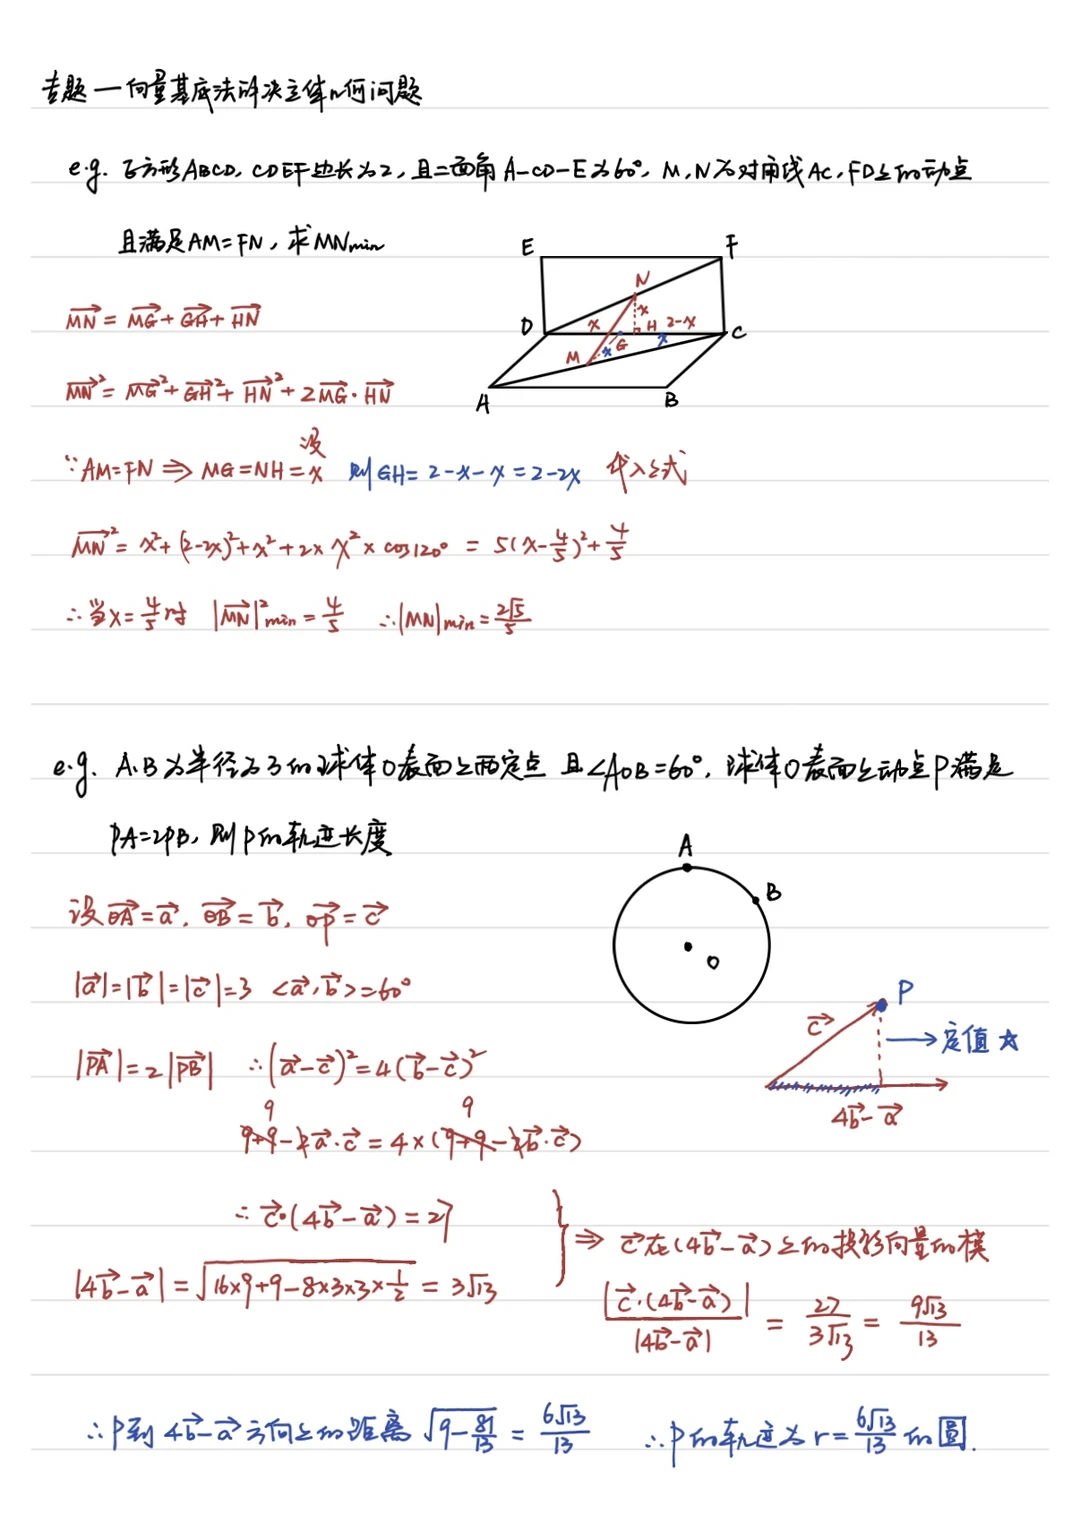 专题一向量基底法解决立体几何问题
e.g. 正方形ABCD, CDEF边长为2, 且二面角A-CD-E为60°, M,N为对角线AC, FD上的动点
且满足AM=FN, 求MNmin
E
F
N
x
D
x
H
2-x
C
M
x
G
x
A
B
→MN = →MG + →GH + →HN
→MN² = →MG² + →GH² + →HN² + 2→MG·→HN
设
∵AM=FN ⇒ MG=NH=x 则GH=2-x-x=2-2x 代入上式
→MN² = x²+(2-2x)²+x²+2×x²×cos120° = 5(x-4/5)²+4/5
∴当x=4/5时 |→MN|²min=4/5 ∴|MN|min=2√5/5
e.g. A.B为半径为3的球体O表面上两定点 且∠AOB=60°, 球体O表面上动点P满足
PA=2PB, 则P的轨迹长度
A
B
O
设→OA=→a, →OB=→b, →OP=→c
|→a|=|→b|=|→c|=3 <→a,→b>=60°
P
→c
→定值☆
4→b-→a
|→PA|=2|→PB| ∴(→a-→c)²=4(→b-→c)²
9 9
9+9-2→a·→c=4×(9+9-2→b·→c)
∴→c·(4→b-→a)=27
|4→b-→a|=√(16×9+9-8×3×3×1/2)=3√13
} ⇒ →c在(4→b-→a)上的投影向量的模
|→c·(4→b-→a)|/|4→b-→a| = 27/3√13 = 9√13/13
∴P到4→b-→a方向上的距离√(9-81/13) = 6√13/13 ∴P的轨迹为r=6√13/13的圆.